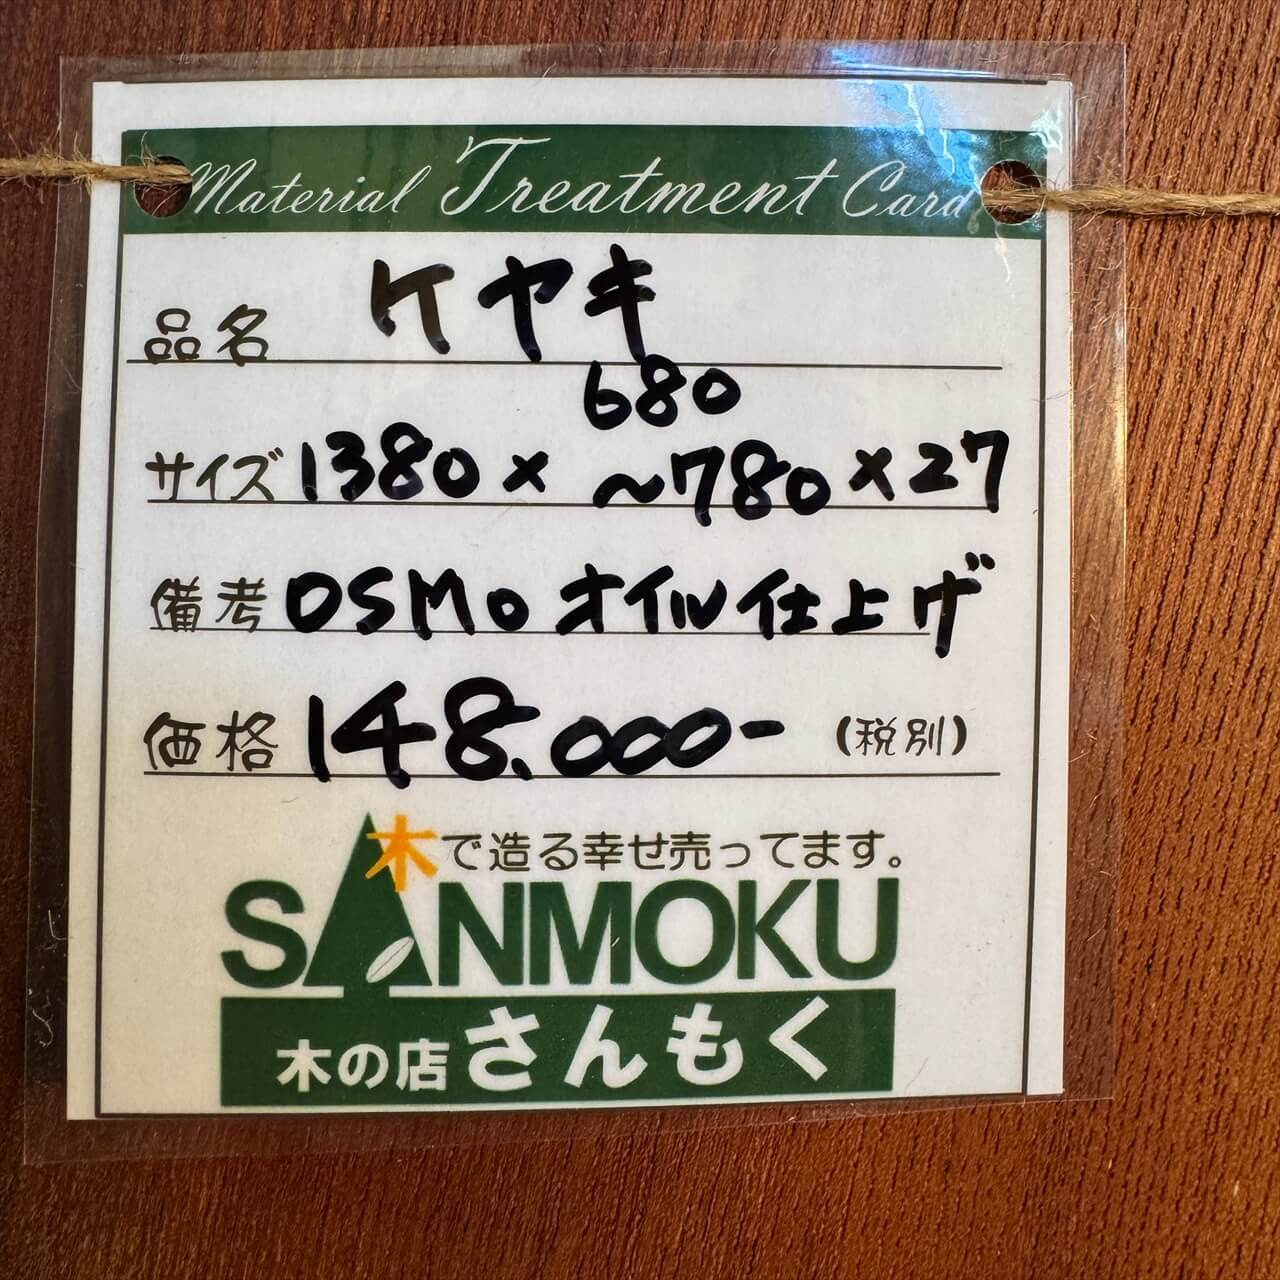 Material Treatment Card
品名 ケヤキ
680
サイズ 1380 × ～780 × 27
備考 OSMO オイル仕上げ
価格 148.000- (税別)
木で造る幸せ売ってます。
SANMOKU
木の店 さんもく